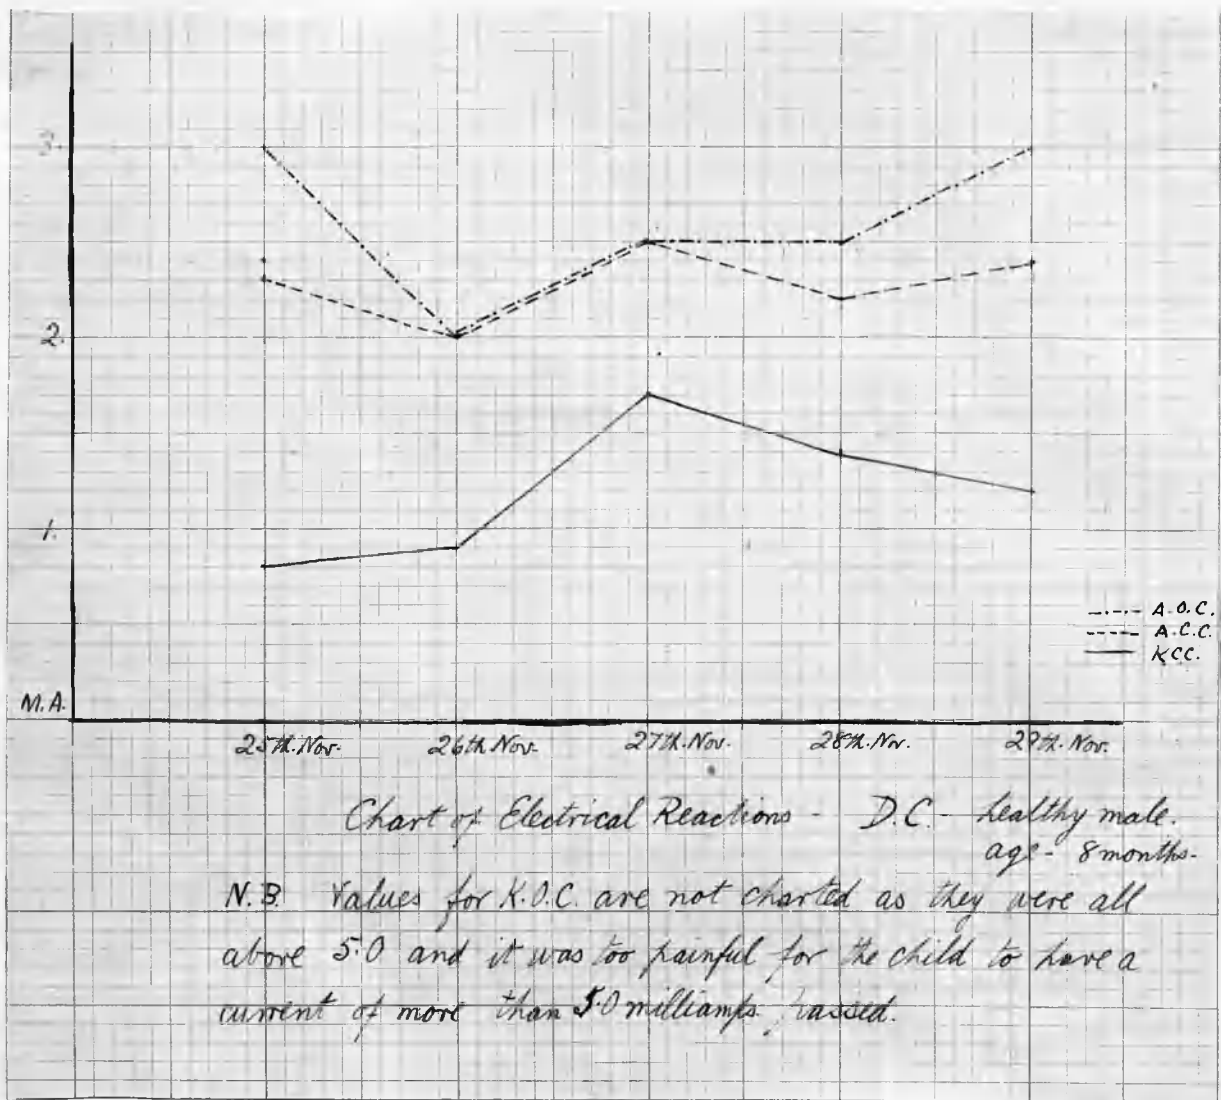 3.
2.
1.
A.O.C.
A.C.C.
KCC.
M.A.
25th.Nov. 26th Nov. 27th.Nov. 28th.Nov. 29th.Nov.
Chart of Electrical Reactions - D.C. - healthy male.
age - 8 months.
N.B. Values for K.O.C. are not charted as they were all
above 5.0 and it was too painful for the child to have a
current of more than 5.0 milliamps. passed.